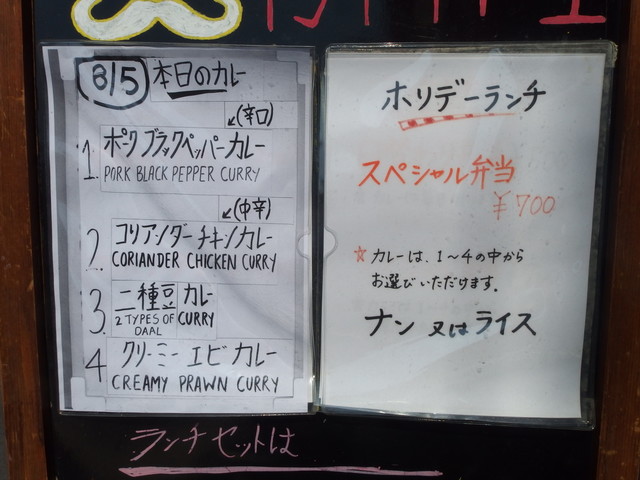 8/5 本日のカレー
↙(辛口)
1. ポークブラックペッパーカレー
PORK BLACK PEPPER CURRY
↙(中辛)
2. コリアンダーチキンカレー
CORIANDER CHICKEN CURRY
3. 二種豆カレー
2 TYPES OF DAAL CURRY
4 クリーミーエビカレー
CREAMY PRAWN CURRY
ホリデーランチ
スペシャル弁当
¥700
☆カレーは、1〜4の中から
お選びいただけます。
ナン 又は ライス
ランチセットは